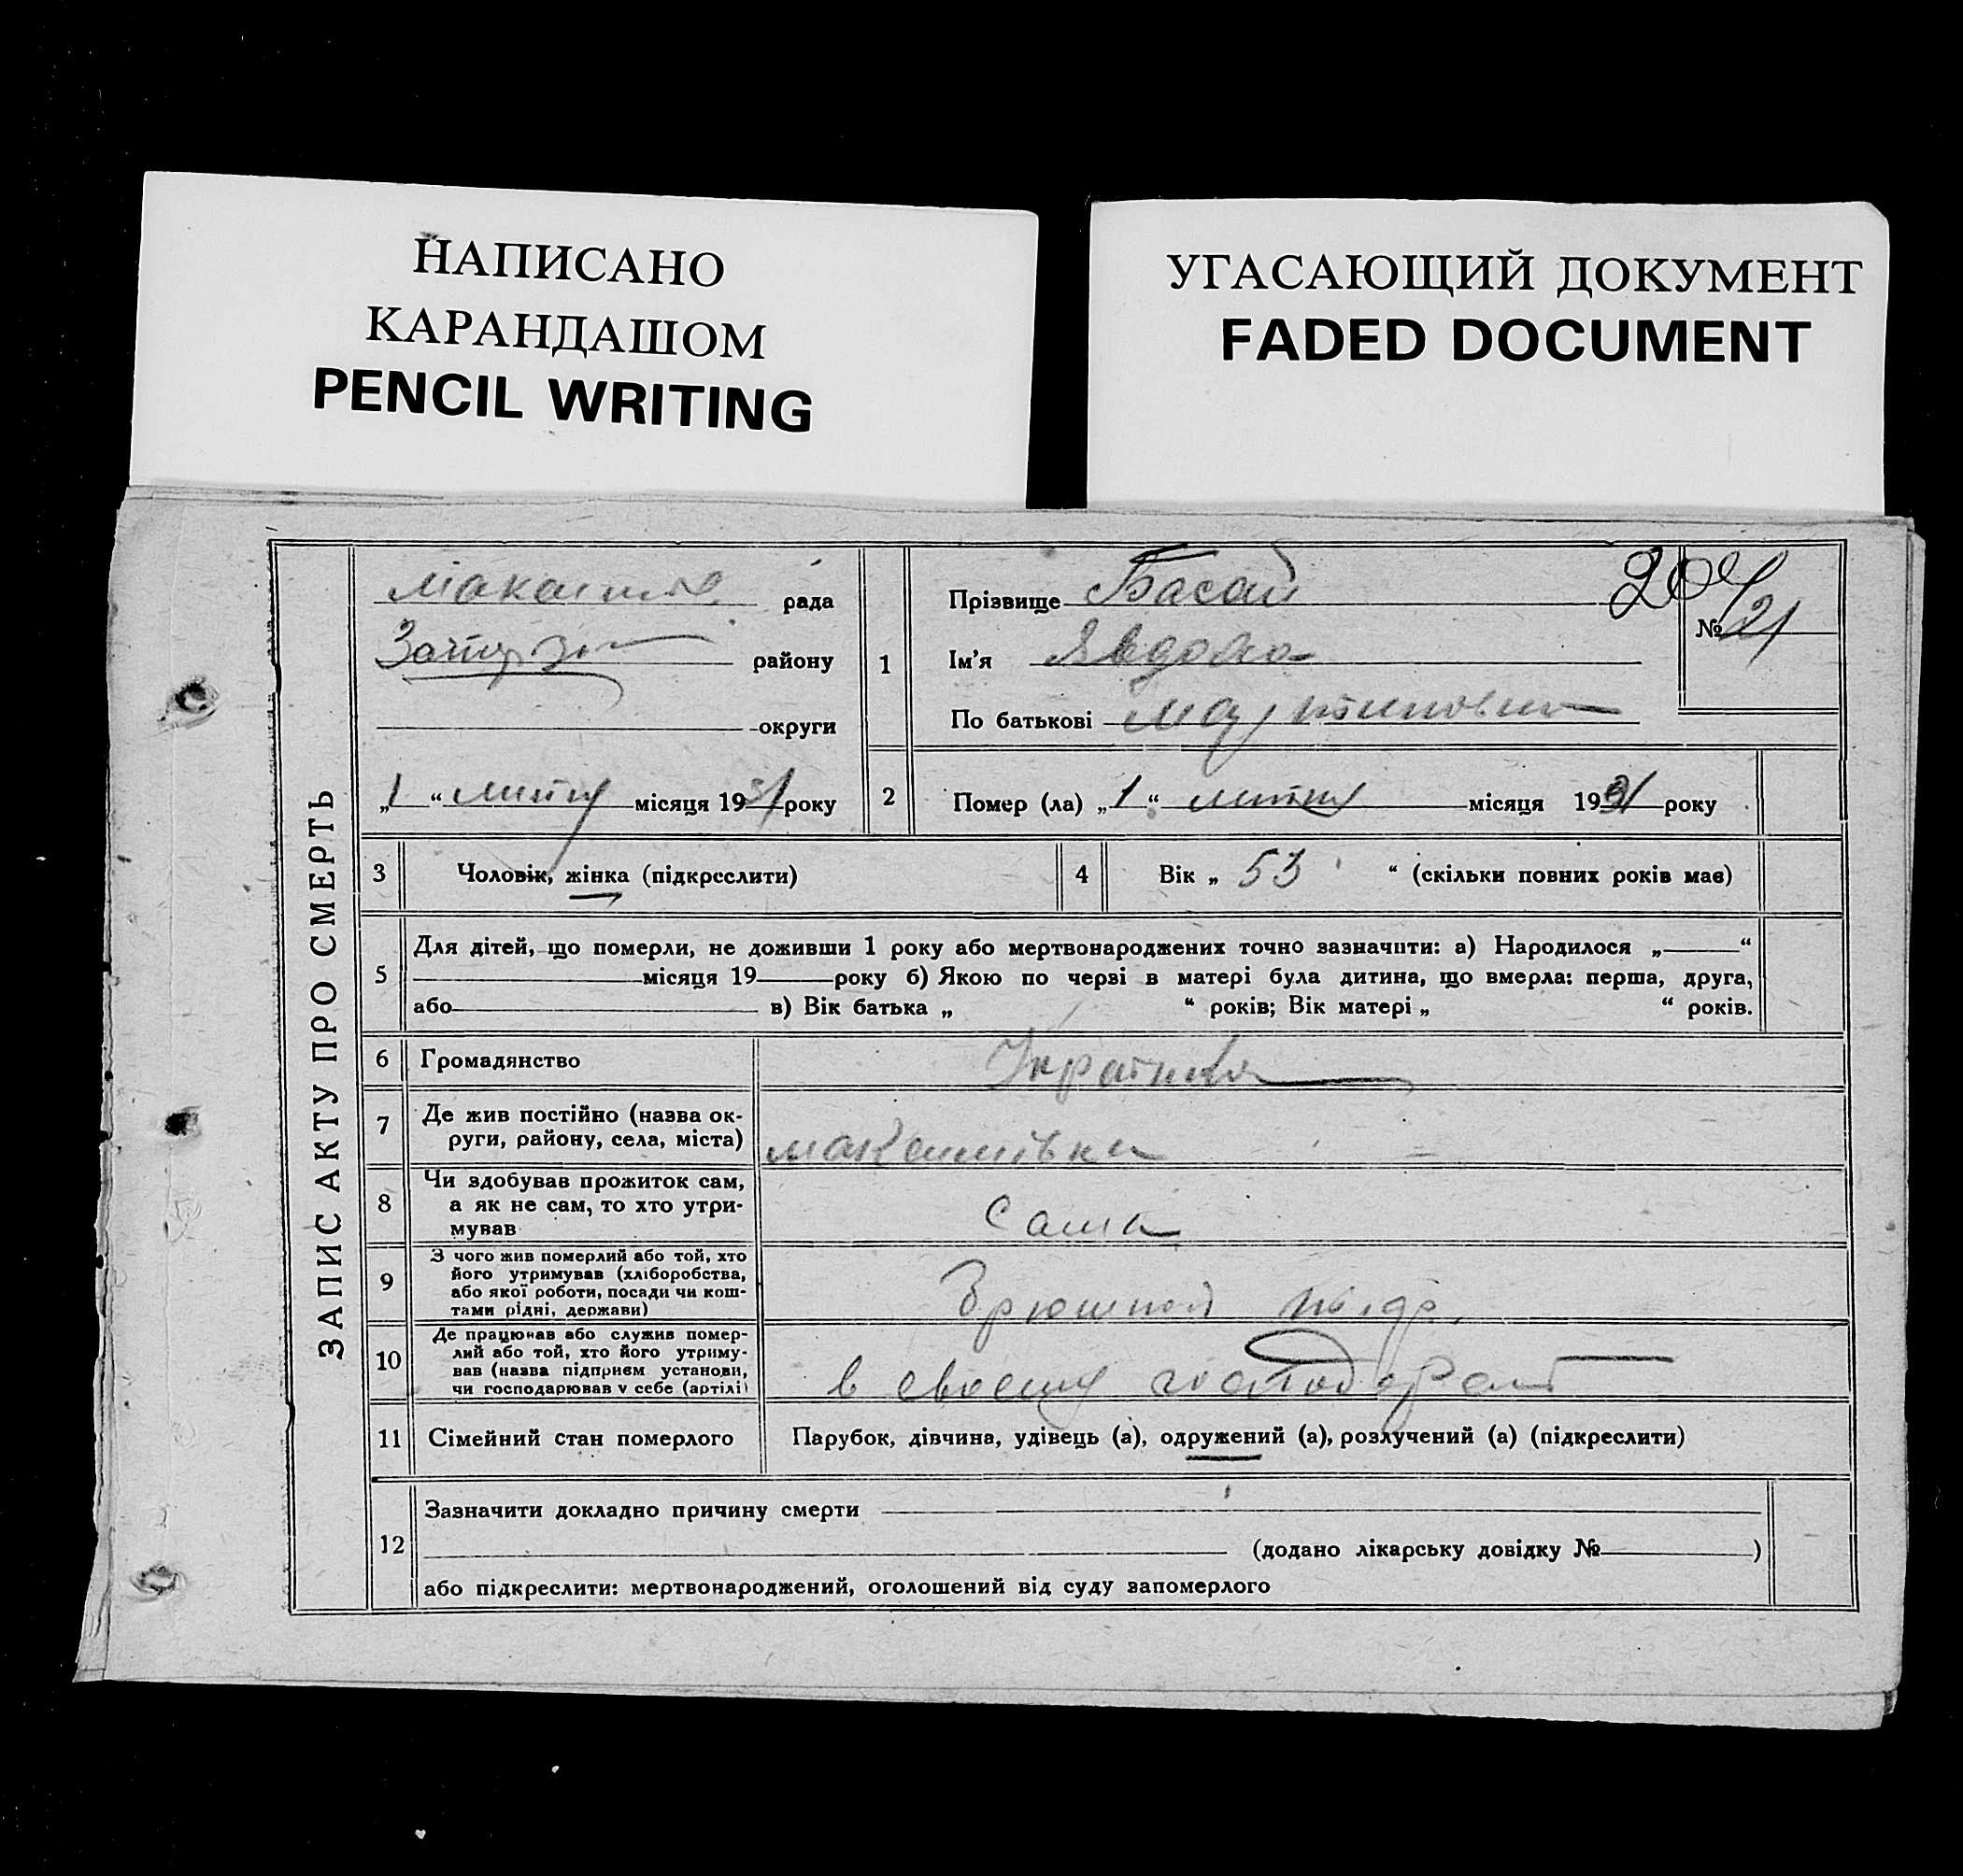 НАПИСАНО
КАРАНДАШОМ
PENCIL WRITING
УГАСАЮЩИЙ ДОКУМЕНТ
FADED DOCUMENT
ЗАПИС АКТУ ПРО СМЕРТЬ
рада
району
округи
„1“ місяця 1931 року
1
Прізвище Басай
Ім'я Явдоха
По батькові Мартиновна
204
№ 21
2
Помер (ла) „1“ місяця 1931 року
3
Чоловік, жінка (підкреслити)
4
Вік „ 53 “ (скільки повних років має)
5
Для дітей, що померли, не доживши 1 року або мертвонароджених точно зазначити: а) Народилося „ “
місяця 19 року б) Якою по черві в матері була дитина, що вмерла: перша, друга,
або в) Вік батька „ “ років; Вік матері „ “ років.
6
Громадянство
Українка
7
Де жив постійно (назва ок-
руги, району, села, міста)
Макешівка
8
Чи здобував прожиток сам,
а як не сам, то хто утри-
мував
Сама
9
З чого жив померлий або той, хто
його утримував (хліборобства,
або якої роботи, посади чи кош-
тами рідні, держави)
10
Де працював або служив помер-
лий або той, хто його утриму-
вав (назва підприєм установи,
чи господарював у себе (артілі)
в своєму господарст
11
Сімейний стан померлого
Парубок, дівчина, удівець (а), одружений (а), розлучений (а) (підкреслити)
12
Зазначити докладно причину смерти
(додано лікарську довідку № )
або підкреслити: мертвонароджений, оголошений від суду запомерлого